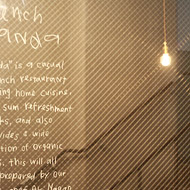 anda
da" is a casual
nch restaurant
ing home cuisine.
sum refreshment
ts, and also
vides a wide
tion of organic
s. this will all
prepared by our